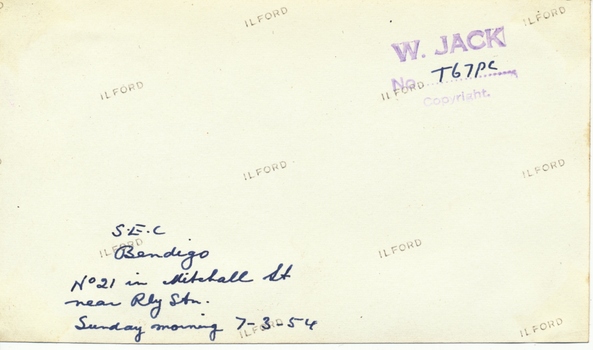 ILFORD
ILFORD
W. JACK
No. T67PC
Copyright.
ILFORD
ILFORD
ILFORD
ILFORD
S.E.C
Bendigo
ILFORD
ILFORD
No 21 in Mitchell St
near Rly Stn.
Sunday morning 7-3-54
ILFORD
ILFORD